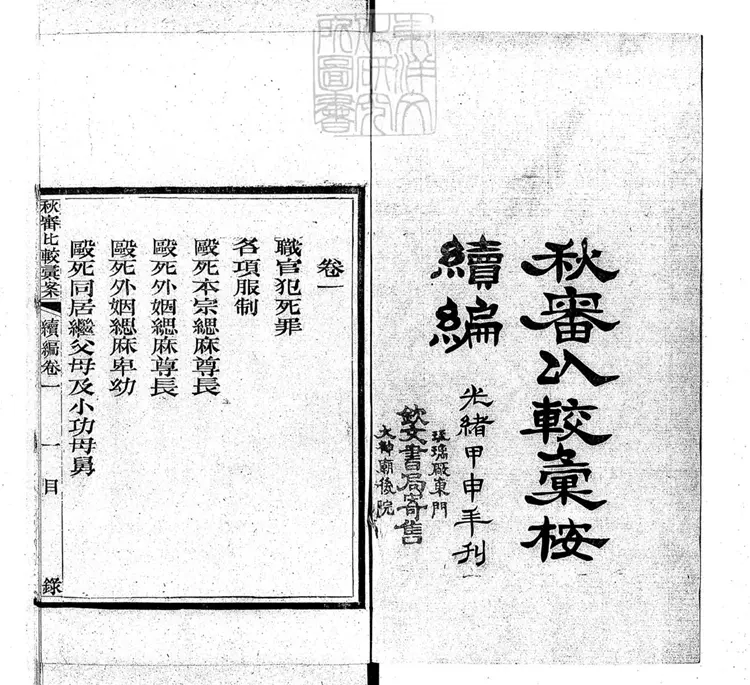 東洋文
化研究
所圖書
秋審比較彙桉
續編
光緒甲申年刊
琉璃厰東門
欽文書局寄售
火神廟後院
卷一
職官犯死罪
各項服制
毆死本宗緦麻尊長
毆死外姻緦麻尊長
毆死外姻緦麻卑幼
毆死同居繼父母及小功母舅
秋審比較彙案 續編卷一 一 目錄